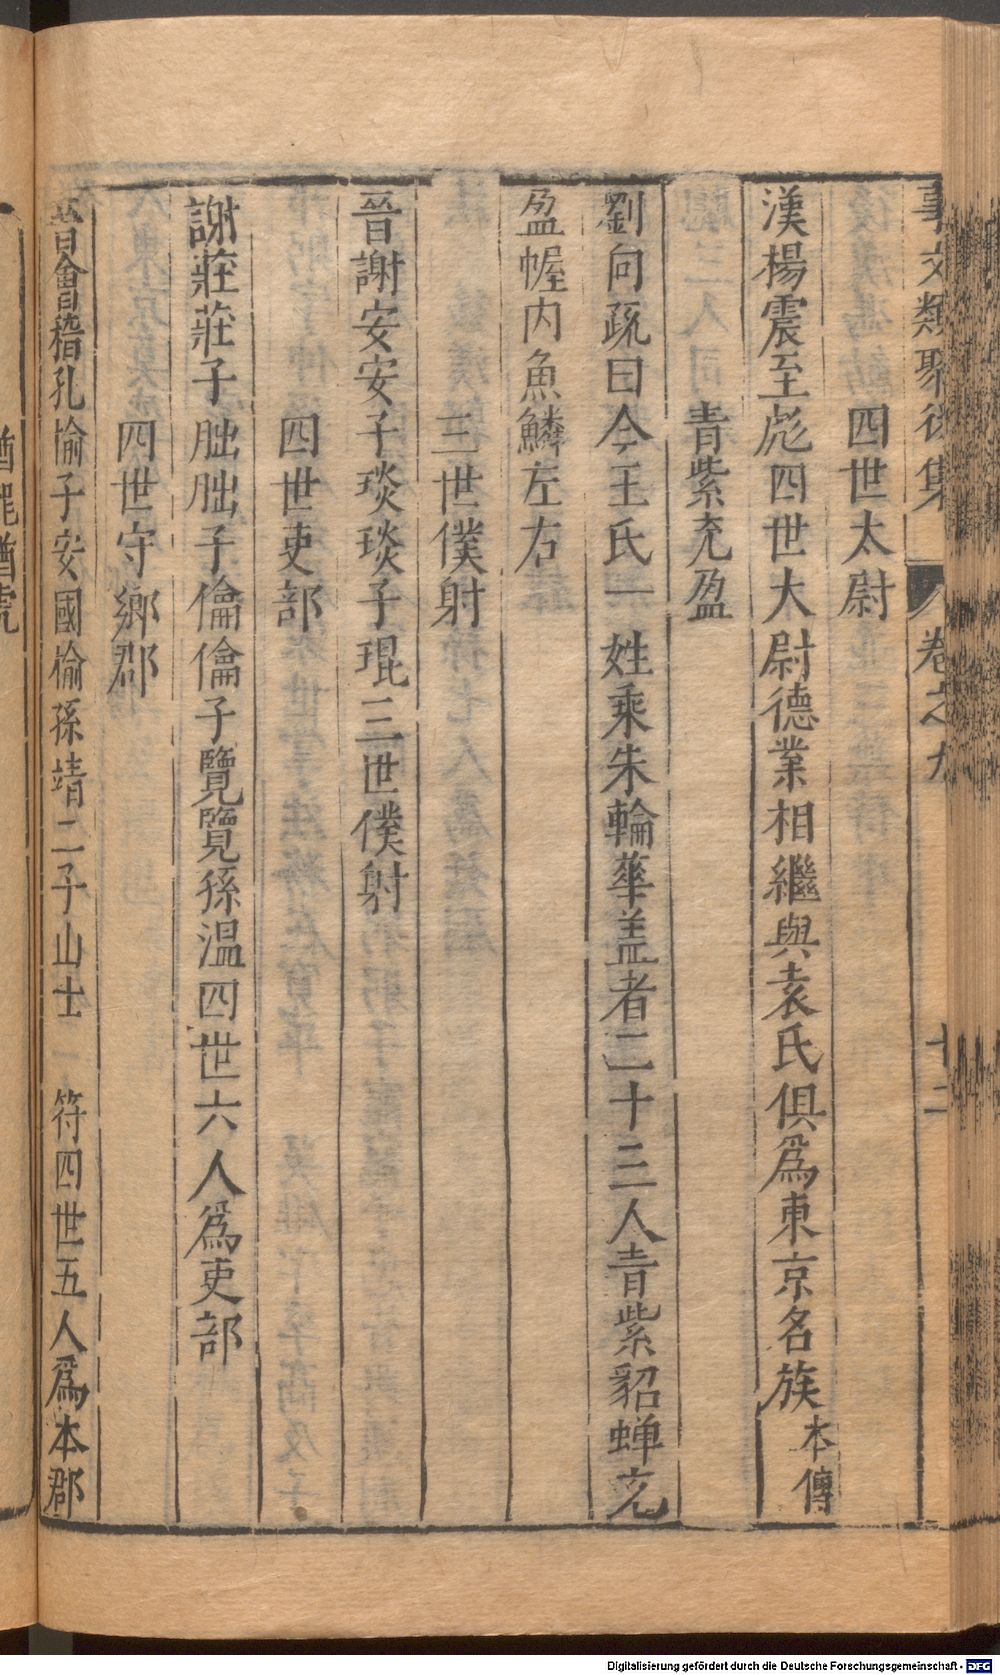 事文類聚後集 卷之九 十二
四世太尉
漢楊震至彪四世太尉德業相繼與袁氏俱爲東京名族本傳
青紫充盈
劉向疏曰今王氏一姓乘朱輪華盖者二十三人青紫貂蟬充
盈幄内魚鱗左右
三世僕射
晉謝安安子琰琰子琨三世僕射
四世吏部
謝莊莊子朏朏子倫倫子覽覽孫温四世六人爲吏部
四世守鄉郡
晉會稽孔愉子安國愉孫靖二子山士 符四世五人爲本郡
Digitalisierung gefördert durch die Deutsche Forschungsgemeinschaft - DFG